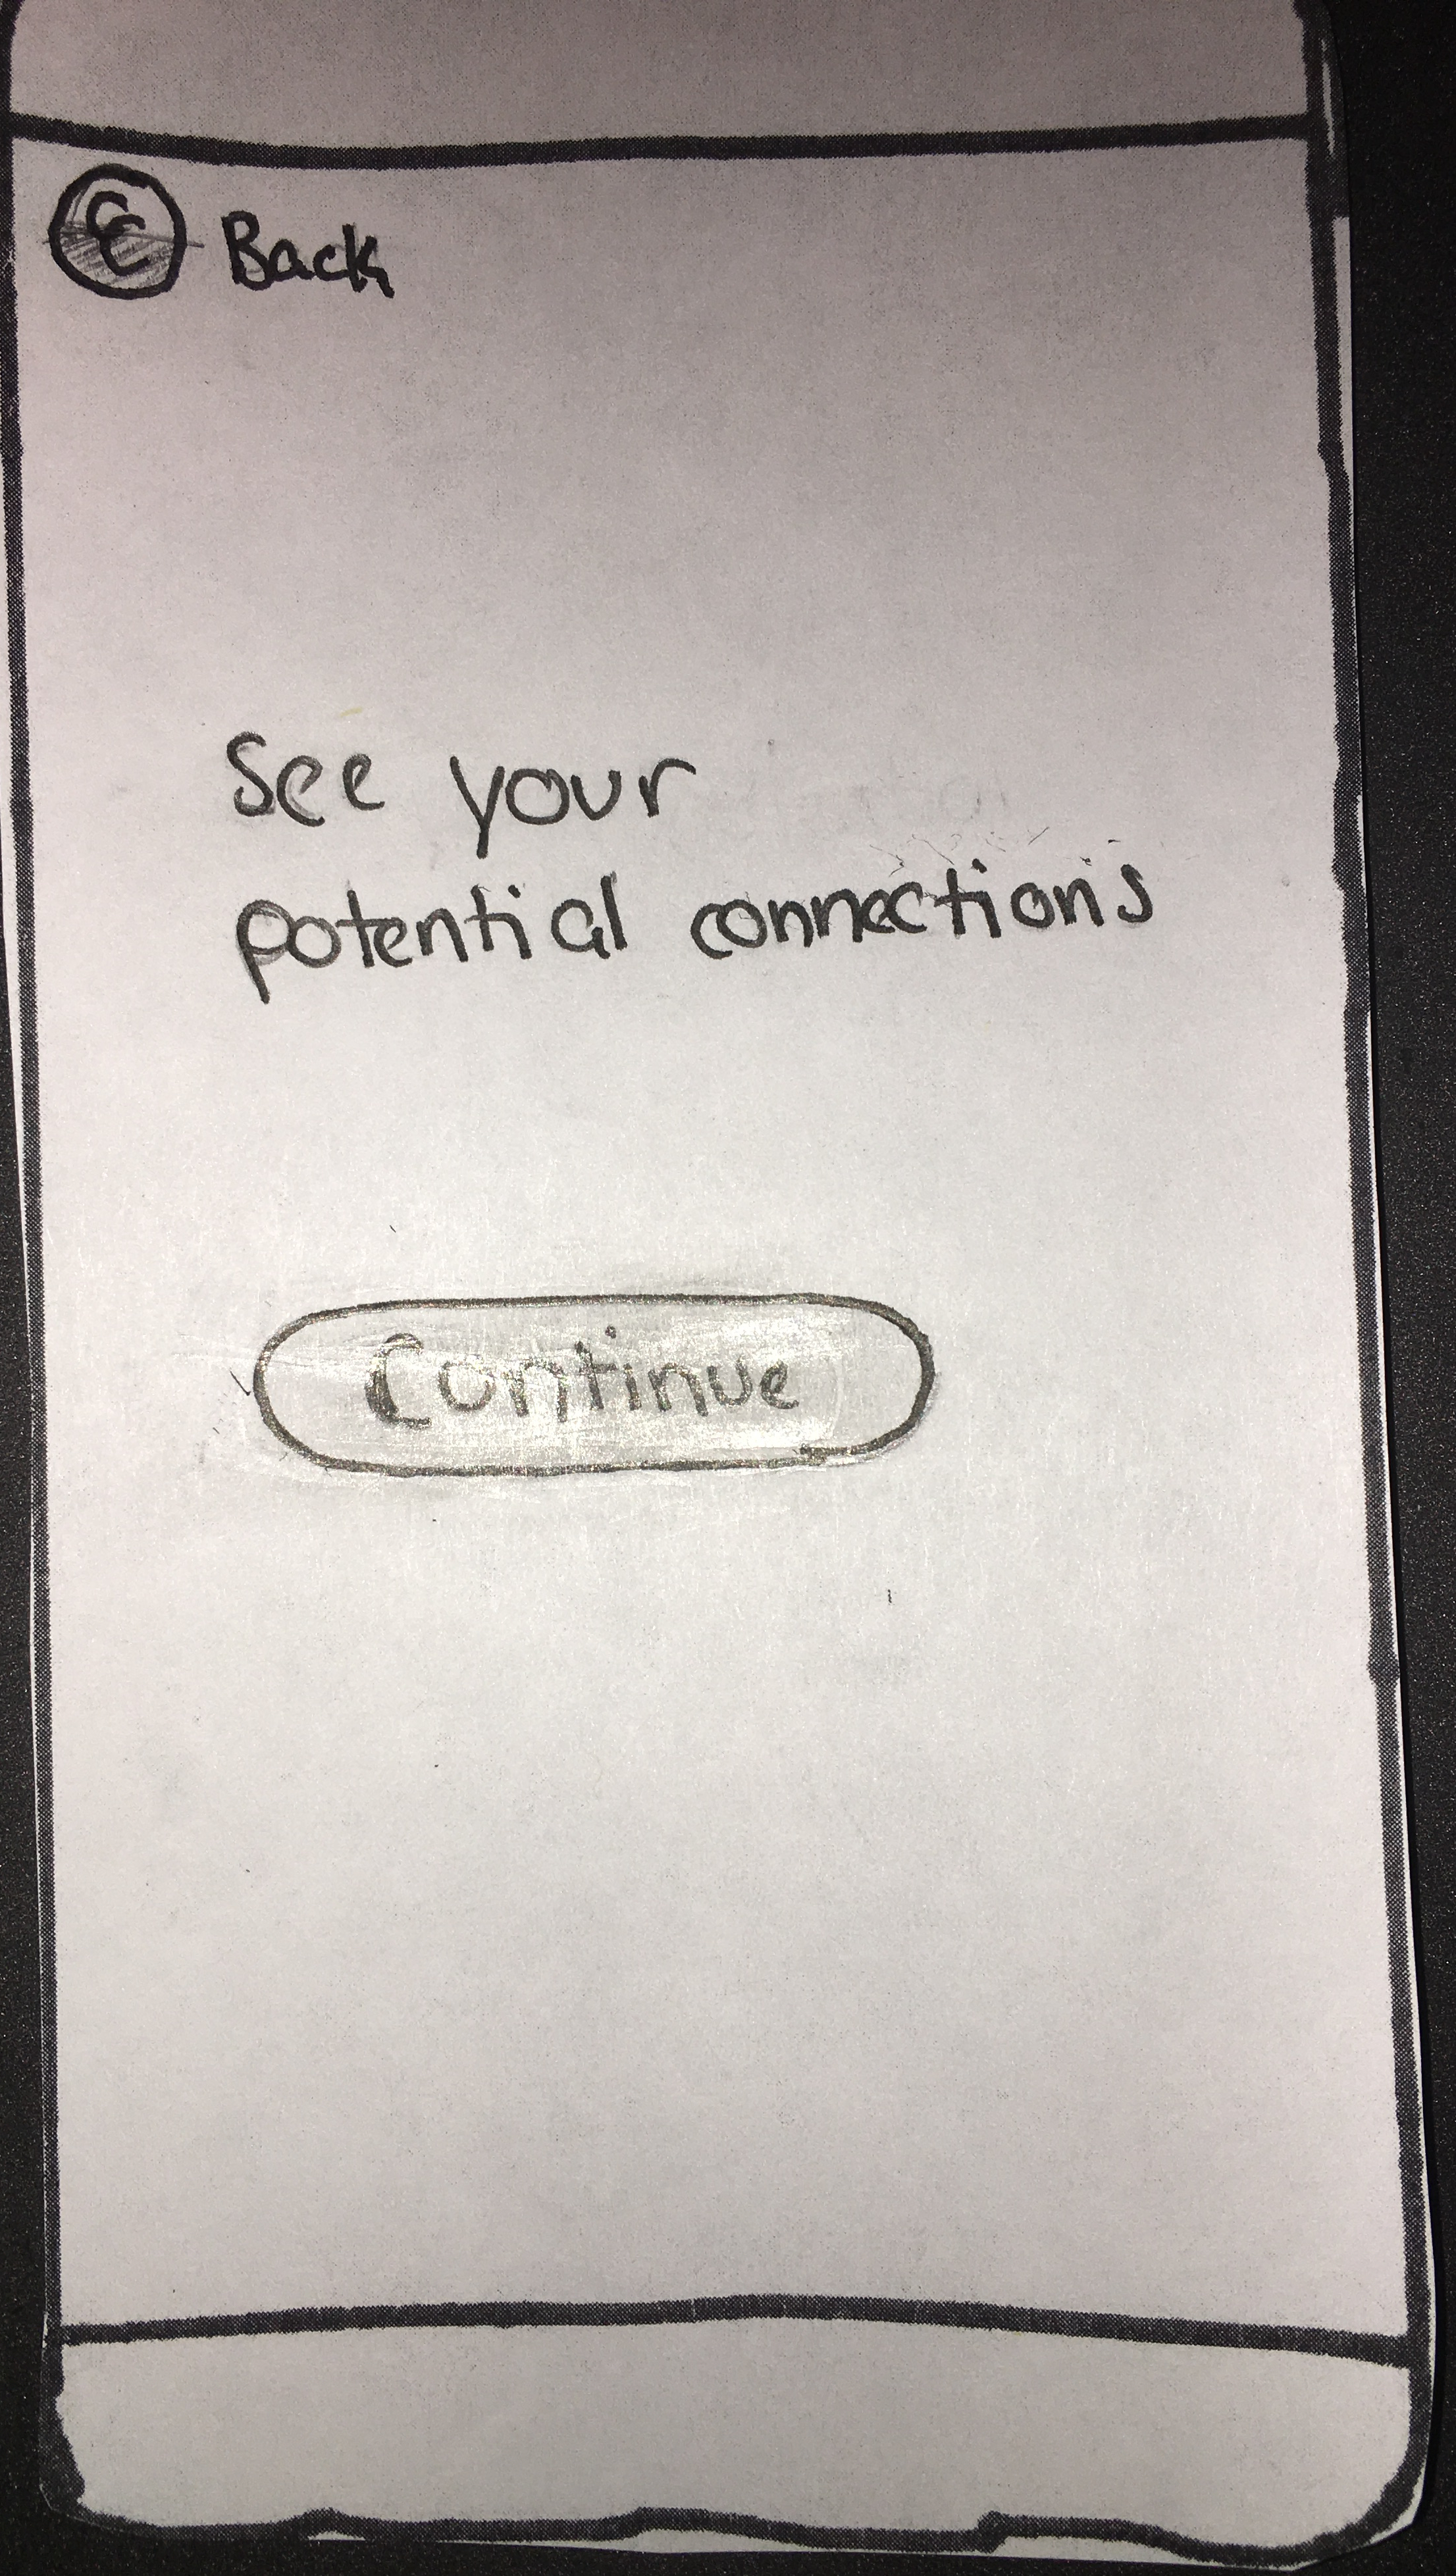 CC Back
See your
potential connections
Continue